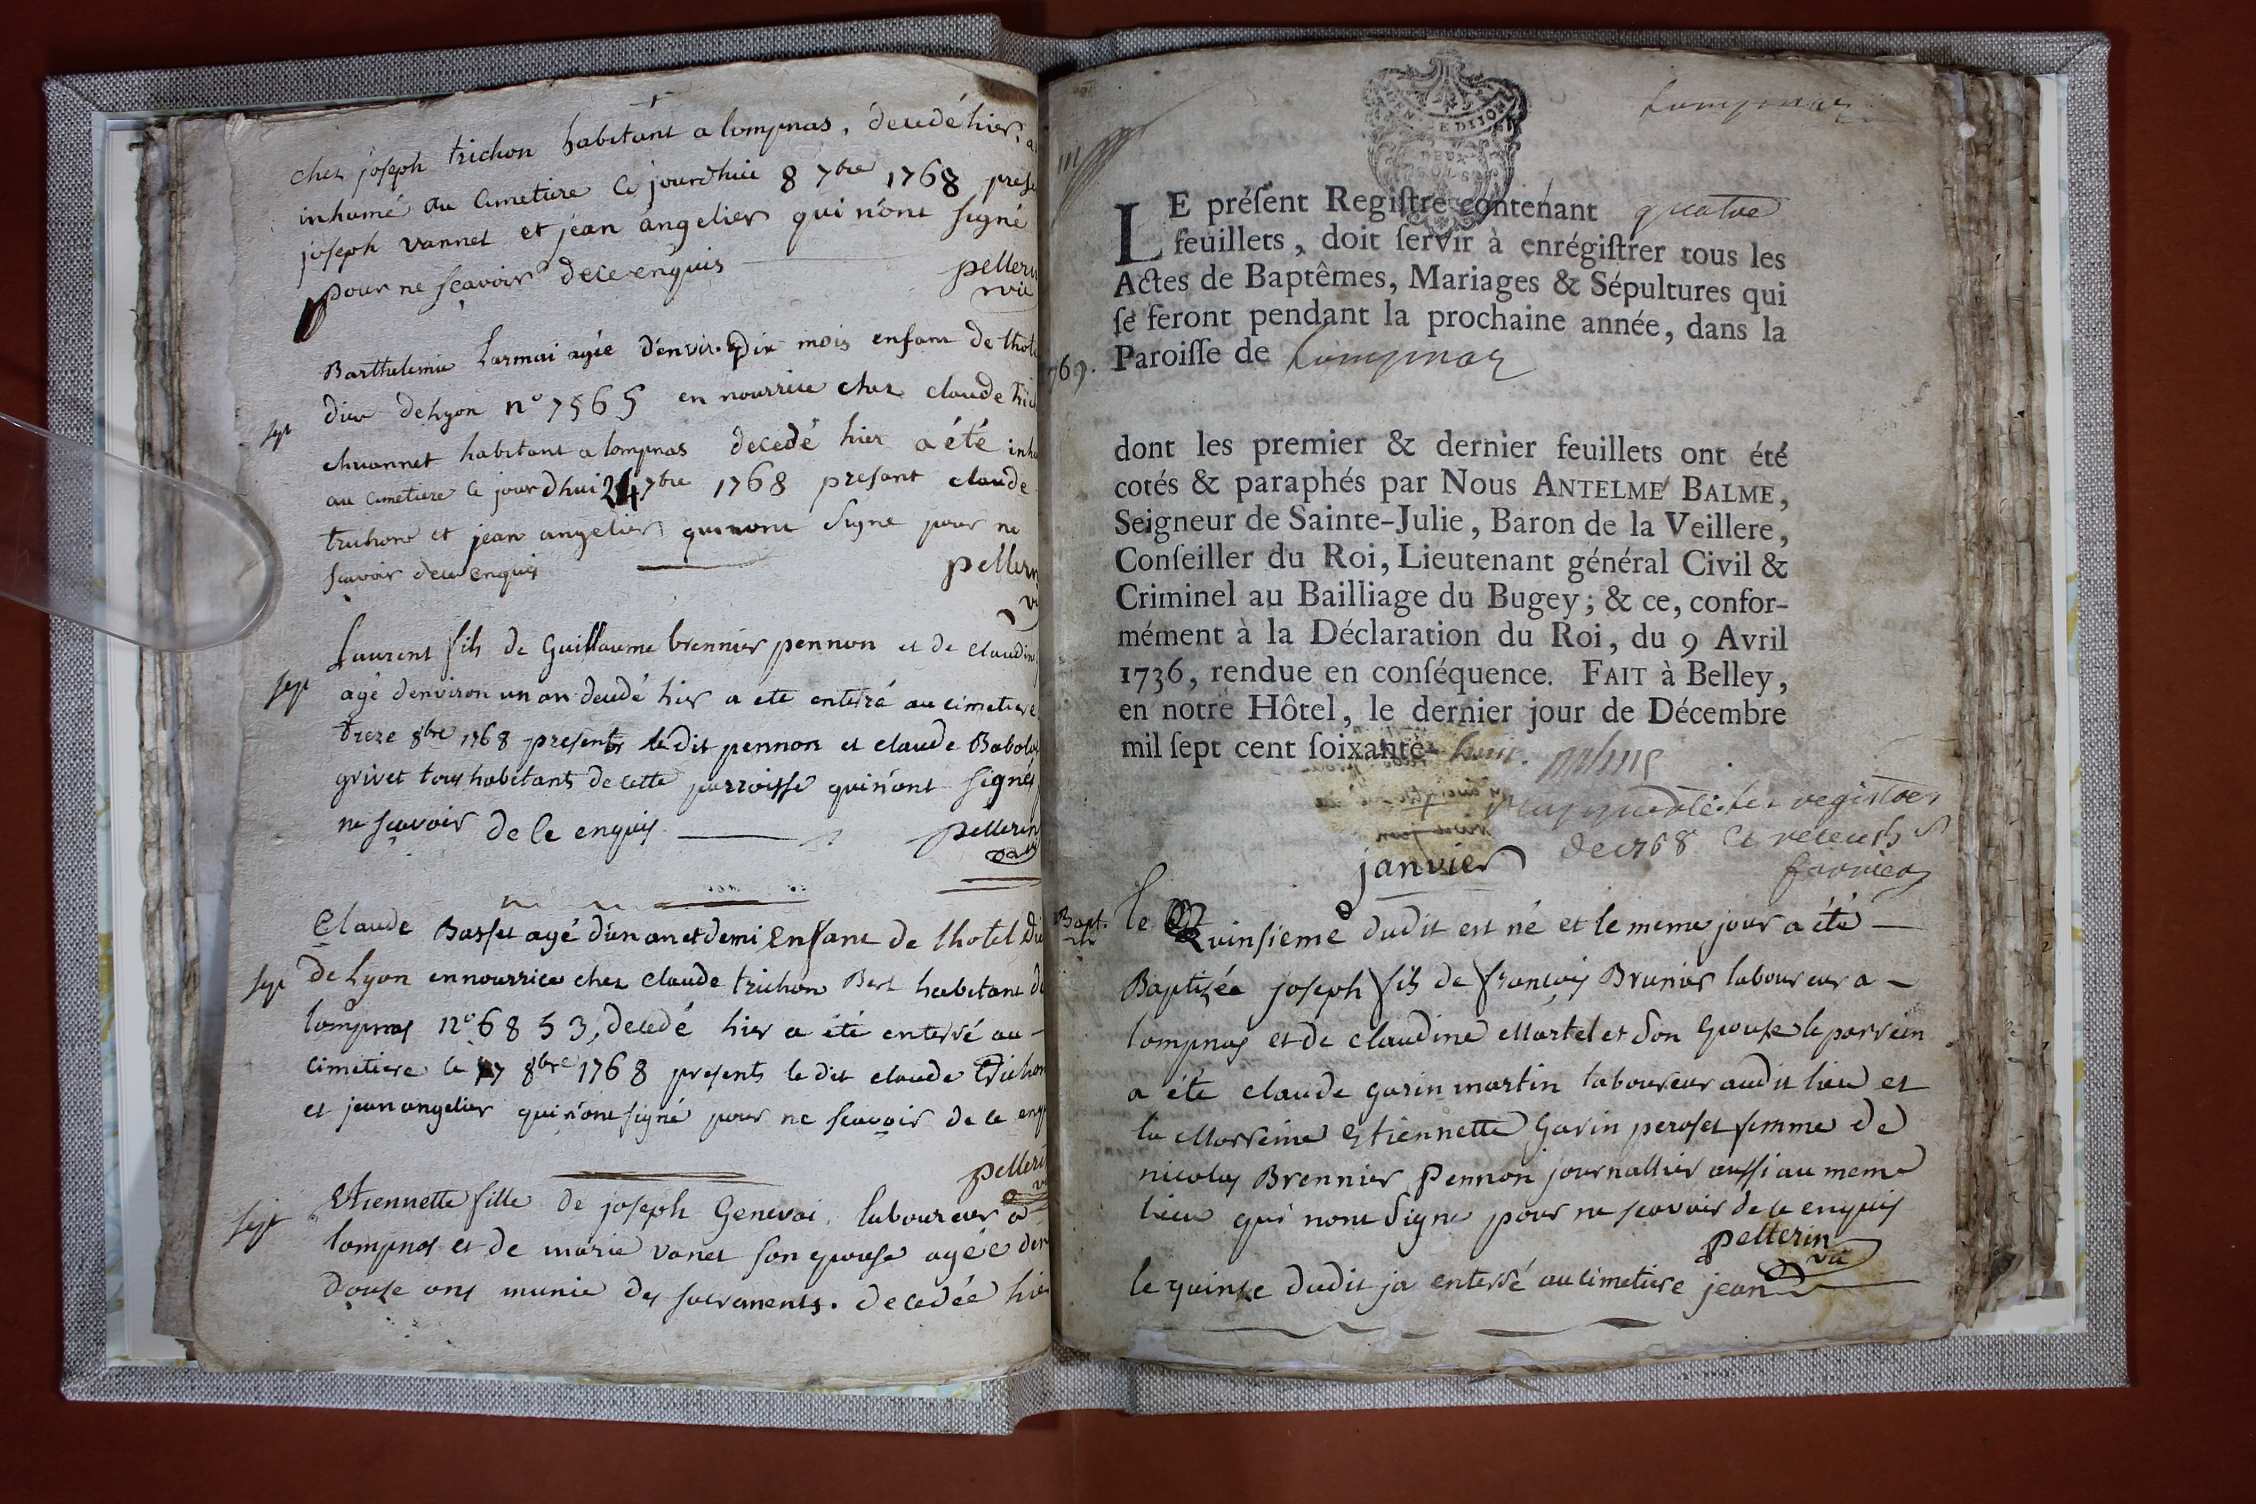 chez joseph trichon habitant a lompnas, decedé hier, a
inhumé au Cimetiere Ce jourd'huii 8 7bre 1768 prese
joseph vannet et jean angelier qui n'ont signé
pour ne sçavoir de ce enquis
pellerin
vic
Barthelemie Larmai agée d'envir. dix mois enfant de lhotel
dieu de Lyon n° 7565 en nourrice chez claude trich
chuannet habitant a lompnas decedé hier a été inhu
au Cimetiere Ce jourdhui 24 7bre 1768 presant claude
trichon et jean angelier qui n'ont signe pour ne
sçavoir de ce enquis
pellerin
vi
sept
Laurent fils de Guillaume brennier pennon et de claudine
agé d'environ un an decedé hier a eté enterré au cimetiere
treze 8bre 1768 presents le dit pennon et claude Babolat
grivet tous habitants de cette parroisse qui n'ont signés
ne sçavoir de Ce enquis
pellerin
vic
sept
Claude Basset agé d'un an et demi enfant de lhotel Di
de Lyon en nourrice chez claude trichon Bert habitant de
lompnas n° 6853, decedé hier a été enterré au
cimetiere le 17 8bre 1768 presents le dit claude trichon
et jean angelier qui n'ont signé pour ne scavoir de ce enq
pellerin
sept
Etiennette fille de joseph Genevai, laboureur a
lompnas et de marie vanet son epouse agée d'en
douze ans munie des sacrements. decedée hier
sept
Lompnas
LE préſent Regiſtre contenant quatre
feuillets, doit ſervir à enrégiſtrer tous les
Actes de Baptêmes, Mariages & Sépultures qui
ſe feront pendant la prochaine année, dans la
769. Paroiſſe de Lompnas
dont les premier & dernier feuillets ont été
cotés & paraphés par Nous ANTELME BALME,
Seigneur de Sainte-Julie, Baron de la Veillere,
Conſeiller du Roi, Lieutenant général Civil &
Criminel au Bailliage du Bugey; & ce, confor-
mément à la Déclaration du Roi, du 9 Avril
1736, rendue en conſéquence. FAIT à Belley,
en notre Hôtel, le dernier jour de Décembre
mil ſept cent ſoixante- huit.
les registres
de 1768
janvier
Bapt. le Quinsieme dudit est né et le meme jour a été
Baptizée joseph fils de françois Brunier laboureur a
lompnas et de claudine Martelet son epouse le parrein
a été claude garin martin laboureur audit lieu et
la Marreine Etiennette Garin peroset femme de
nicolas Brennier Pennon journallier aussi au meme
lieu qui n'ont signe pour ne scavoir de ce enquis
pellerin
vic
le quinze dudit ja enterré au cimetiere jean